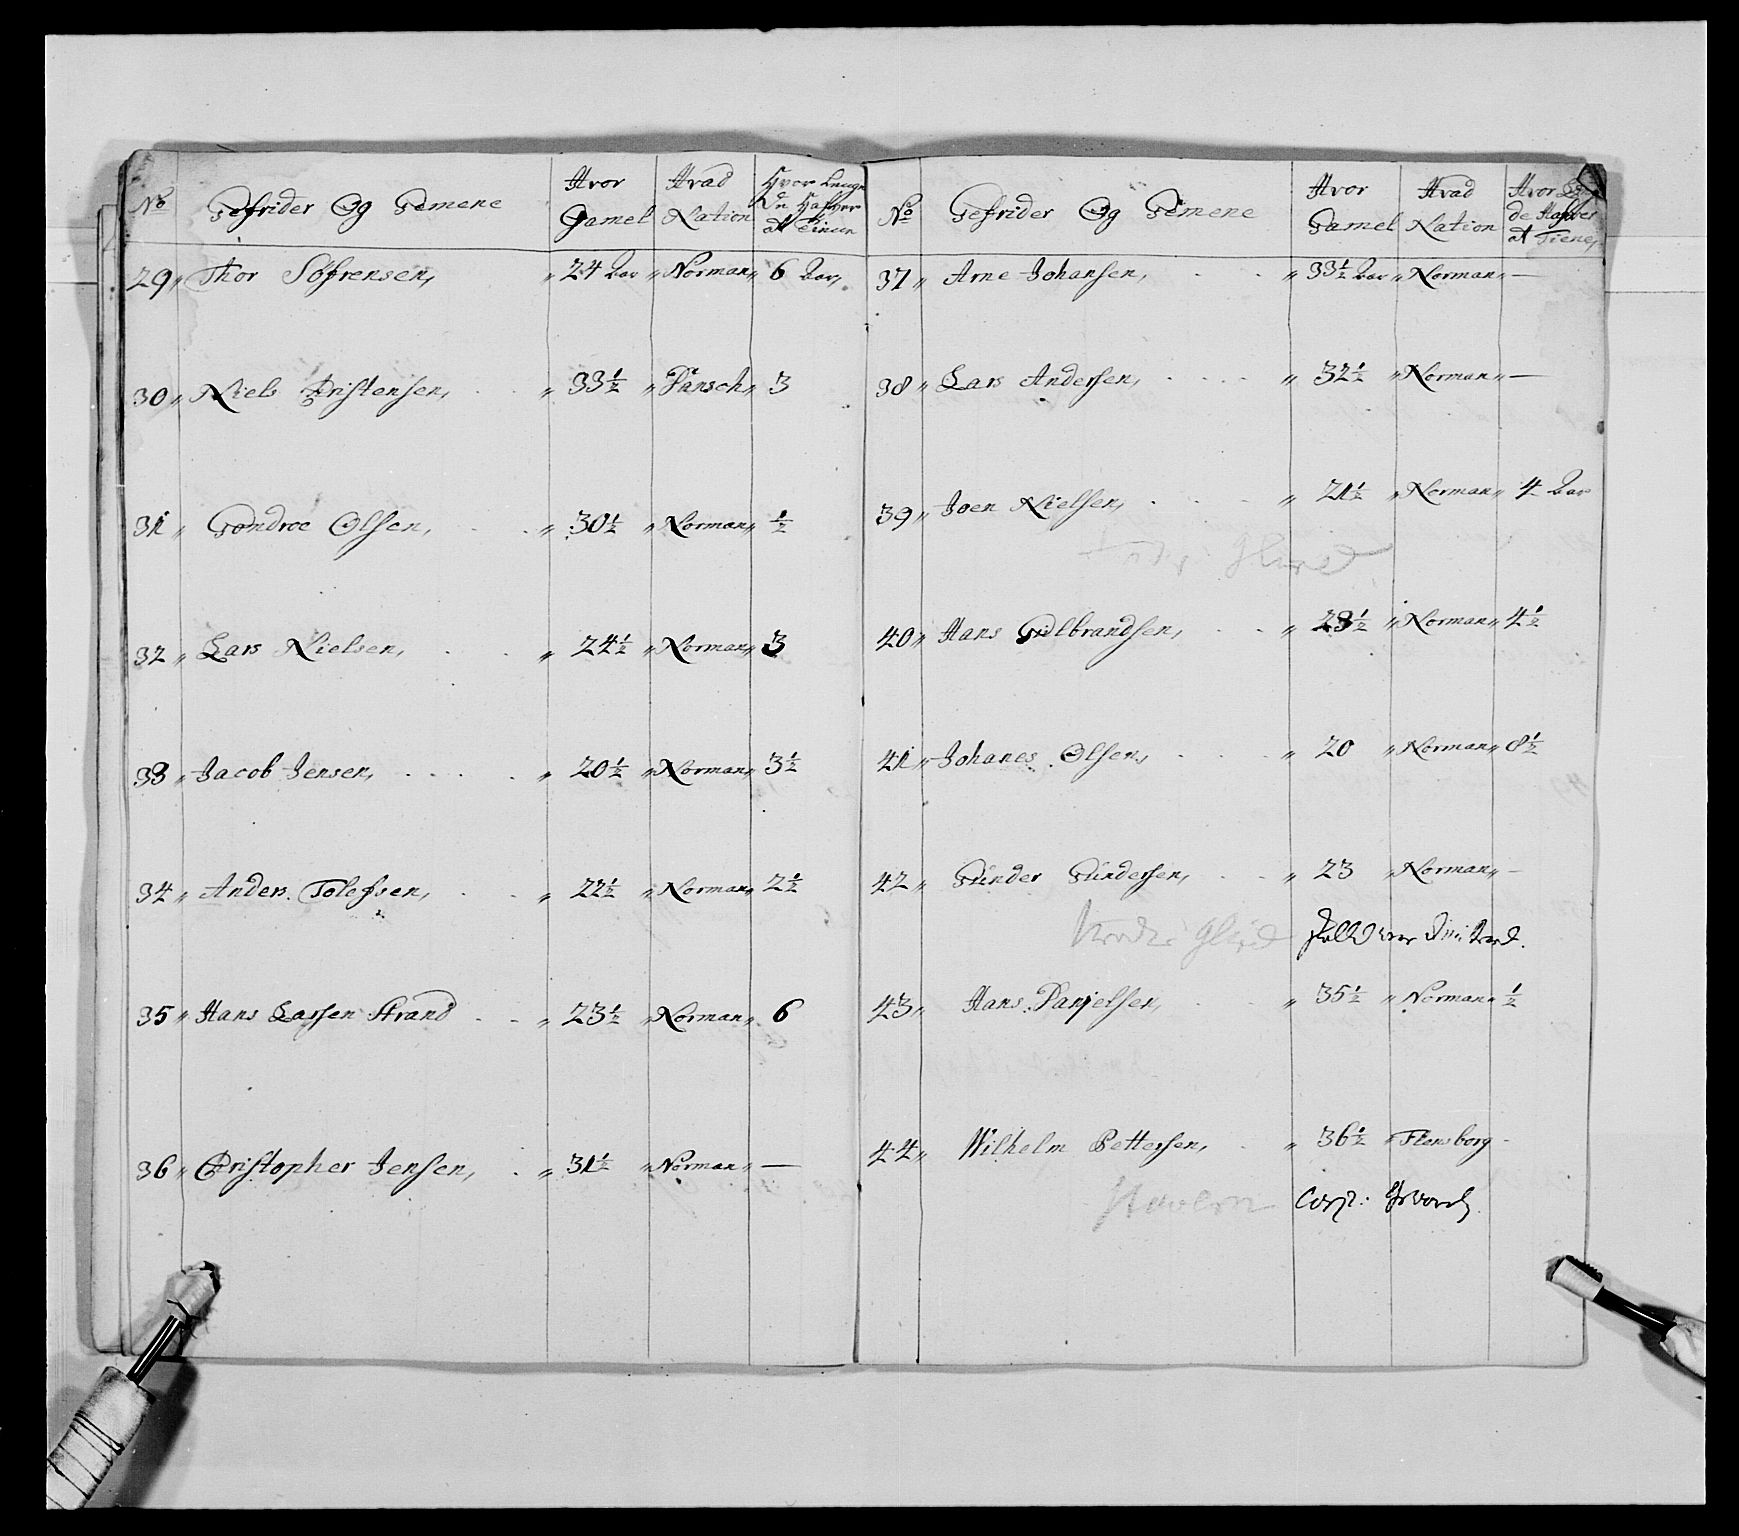 No Gefrider Og Gemene Hvor Gamel Hvad Nation Hvor Lenge De Hafver at Tient
29 „ Thor Söfrensen, „ 24 Aar „ Norman „ 6 Aar,
30 „ Niels Cristensen, „ 33½ „ Dänsch „ 3
31 „ Gondroe Olsen, „ 30½ „ Norman „ ½
32 „ Lars Nielsen, „ 24½ „ Norman „ 3
33 „ Jacob Jensen, „ 20½ „ Norman „ 3½
34 „ Anders Tolefsen, „ 22½ „ Norman „ 2½
35 „ Hans Larsen Strand „ 23½ „ Norman „ 6
36 „ Cristopher Jensen, „ 31½ „ Norman „ —
No Gefrider Og Gemene Hvor Gamel Hvad Nation Hvor de Hafver at Tiene,
37 „ Arne Johansen, „ 33½ Aar „ Norman „ —
38 „ Lars Andersen, „ 32½ „ Norman „ —
39 „ Joen Nielsen, „ 21½ „ Norman „ 4 Aar
40 „ Hans Gulbrandsen, „ 28½ „ Norman „ 4½
41 „ Johanes Olsen, „ 20 „ Norman „ 8½
42 „ Gunder Gundersen, „ 23 „ Norman „ –
43 „ Hans Danjelsen, „ 35½ „ Norman „ ½
44 „ Wilhelm Pettersen, „ 36½ „ Flensborg –
Stavern Corp: